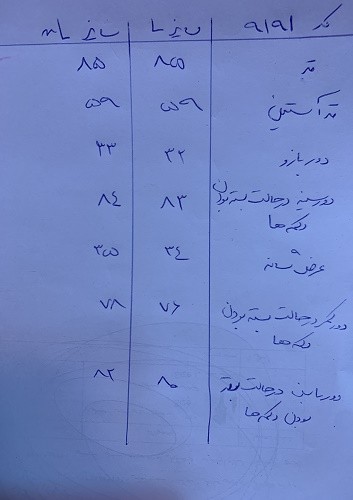 کد ۹۱۹۱ سایز ۱ سایز ۲
قد ۸۵ ۸۵
قد آستین ۵۹ ۵۹
دور بازو ۳۲ ۳۳
دور سینه در حالت بسته بودن ۸۳ ۸۴
دکمه ها
عرض شانه ۳۴ ۳۵
دور کمر در حالت بسته بودن ۷۶ ۷۸
دکمه ها
دور باسن در حالت بسته ۸۰ ۸۲
بودن دکمه ها